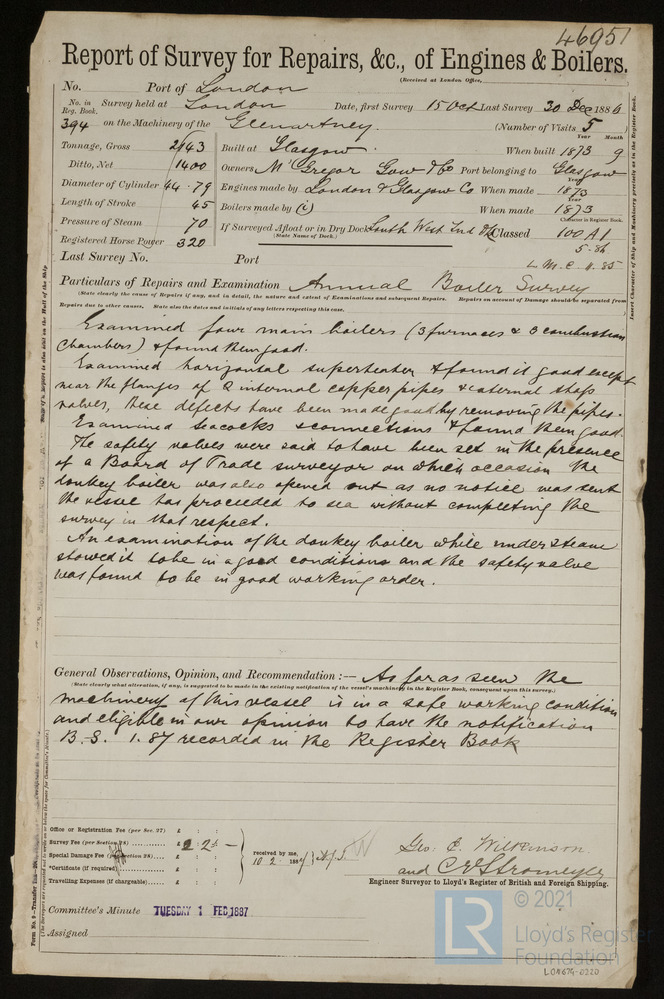 46951
Report of Survey for Repairs, &c., of Engines & Boilers.
(Received at London Office,
No. Port of London
No. in Reg. Book. Survey held at London Date, first Survey 15 Oct Last Survey 30 Dec 1886
394 on the Machinery of the Glenartney. (Number of Visits 5
Tonnage, Gross 2143 Built at Glasgow When built Year 1873 Month 9
Ditto, Net 1400 Owners McGregor Gow & Co Port belonging to Glasgow
Diameter of Cylinder 44 . 79 Engines made by London & Glasgow Co When made Year 1873
Length of Stroke 45 Boilers made by (") When made Year 1873
Pressure of Steam 70 If Surveyed Afloat or in Dry Dock South West Ind Dk Classed Character in Register Book. 100 A1
(State Name of Dock.) 5.86
Registered Horse Power 320
Last Survey No. Port L.M.C. 11.85
Particulars of Repairs and Examination Annual Boiler Survey
(State clearly the cause of Repairs if any, and in detail, the nature and extent of Examinations and subsequent Repairs. Repairs on account of Damage should be separated from
Repairs due to other causes. State also the dates and initials of any letters respecting this case.
Examined four main boilers (3 furnaces & 3 combustion
chambers) & found them good.
Examined horizontal superheater & found it good except
near the flanges of 2 internal copper pipes & external stop
valves, these defects have been made good by removing the pipes.
Examined seacocks & connections & found them good.
The safety valves were said to have been set in the presence
of a Board of Trade surveyor on which occasion the
donkey boiler was also opened out as no notice was sent
the vessel has proceeded to sea without completing the
survey in that respect.
An examination of the donkey boiler while under steam
showed it to be in a good condition and the safety valve
was found to be in good working order.
General Observations, Opinion, and Recommendation :— As far as seen the
(State clearly what alteration, if any, is suggested to be made in the existing notification of the vessel's machinery in the Register Book, consequent upon this survey.)
machinery of this vessel is in a safe working condition
and eligible in our opinion to have the notification
B.S. 1.87 recorded in the Register Book
Office or Registration Fee (per Sec. 27) £ : :
Survey Fee (per Section 28) £ 2 : 2 : -
Special Damage Fee (per Section 28) £ : :
*Certificate (if required) £ : :
Travelling Expenses (if chargeable) £ : :
received by me,
10.2.1887
Geo. C. Wilkinson
and C E Stromeyer
Engineer Surveyor to Lloyd's Register of British and Foreign Shipping.
Committee's Minute TUESDAY 1 FEB 1887
Assigned
Insert Character of Ship and Machinery precisely as in the Register Book.
LR
© 2021
Lloyd's Register
Foundation
LON674-0220